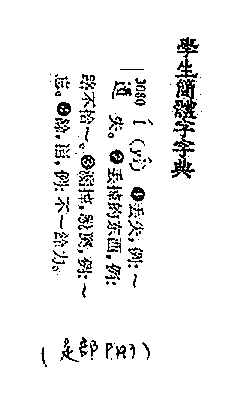 學生簡體字字典
3080 辶 (yí) ❶丢失,例:～
遺 失。❷丢掉的东西,例:
路不拾～。❸漏掉,脱逃,例:～
忘。❹給,留,例:不～給力。
(辵部 P123)